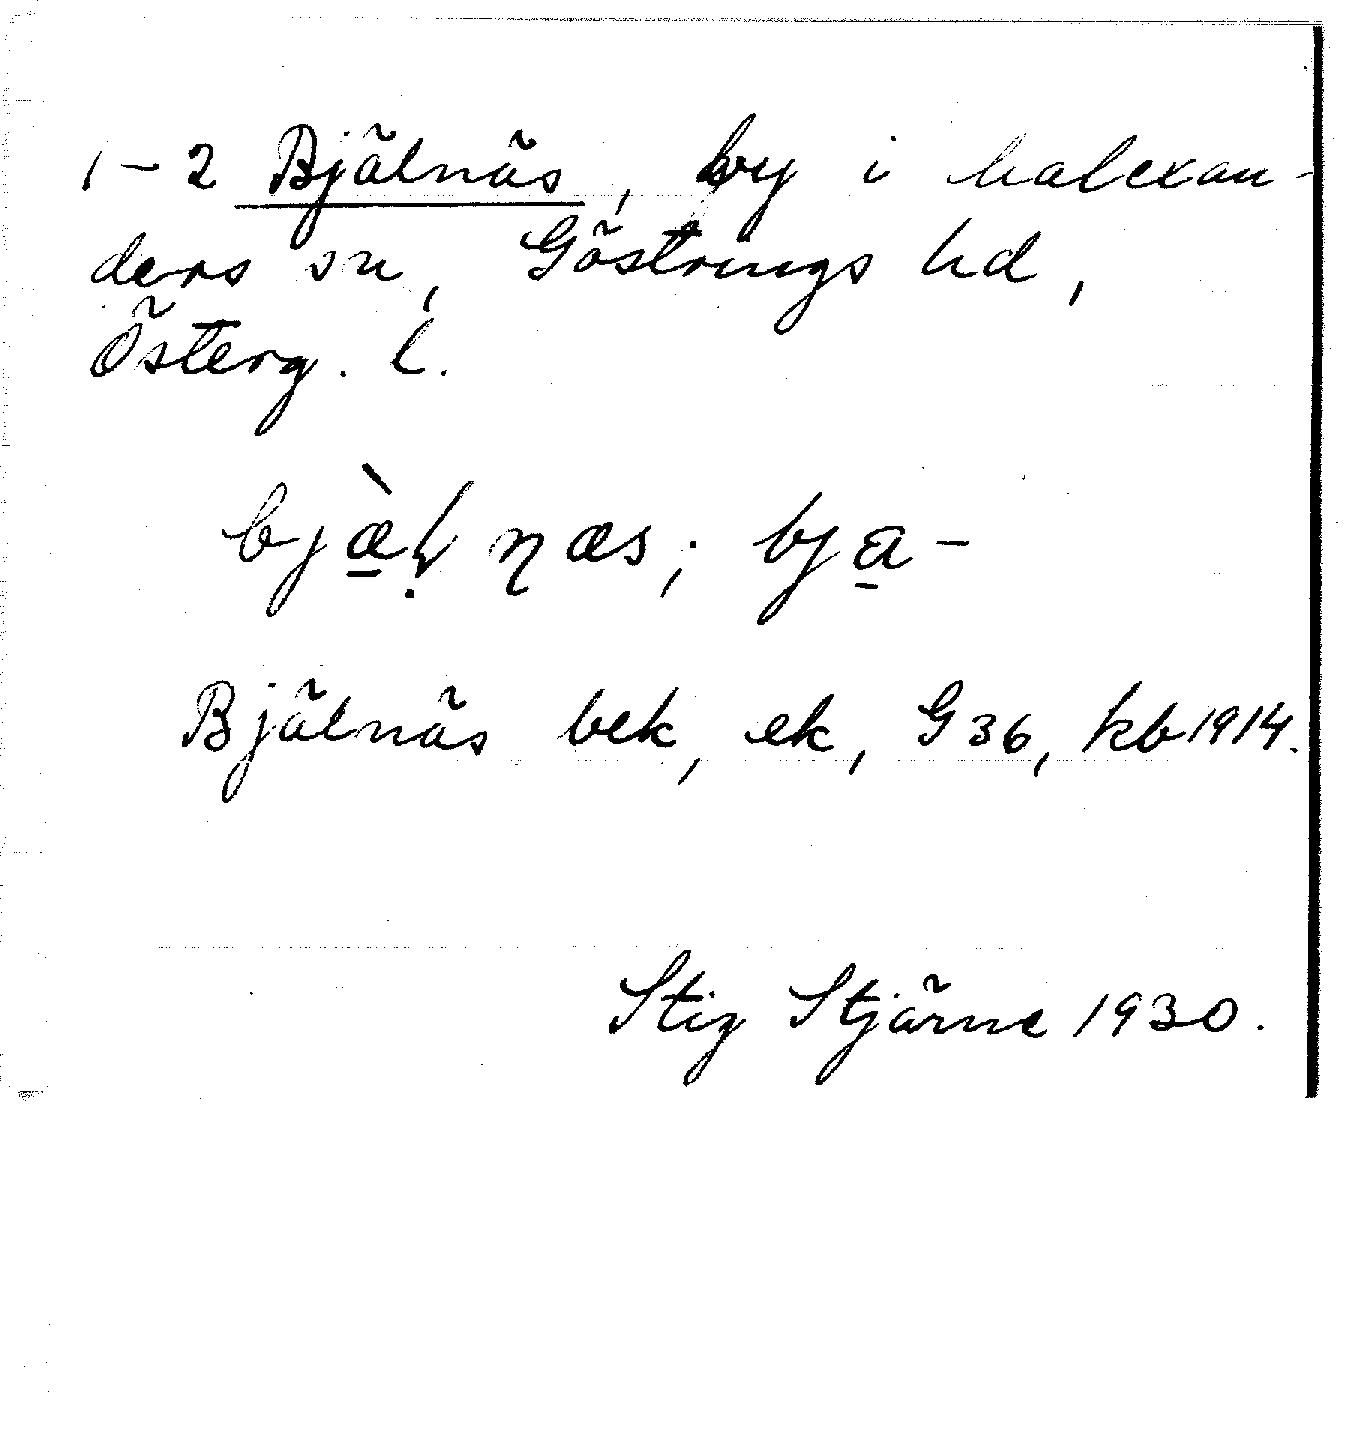 1-2 Bjälnäs, by i Kalexan-
ders sn, Göstrings hd,
Österg. l.
bjæ̠̀ḷ ɳæs; bja̠-
Bjälnäs bek, ek, G36, kb 1914.
Stig Stjärne 1930.